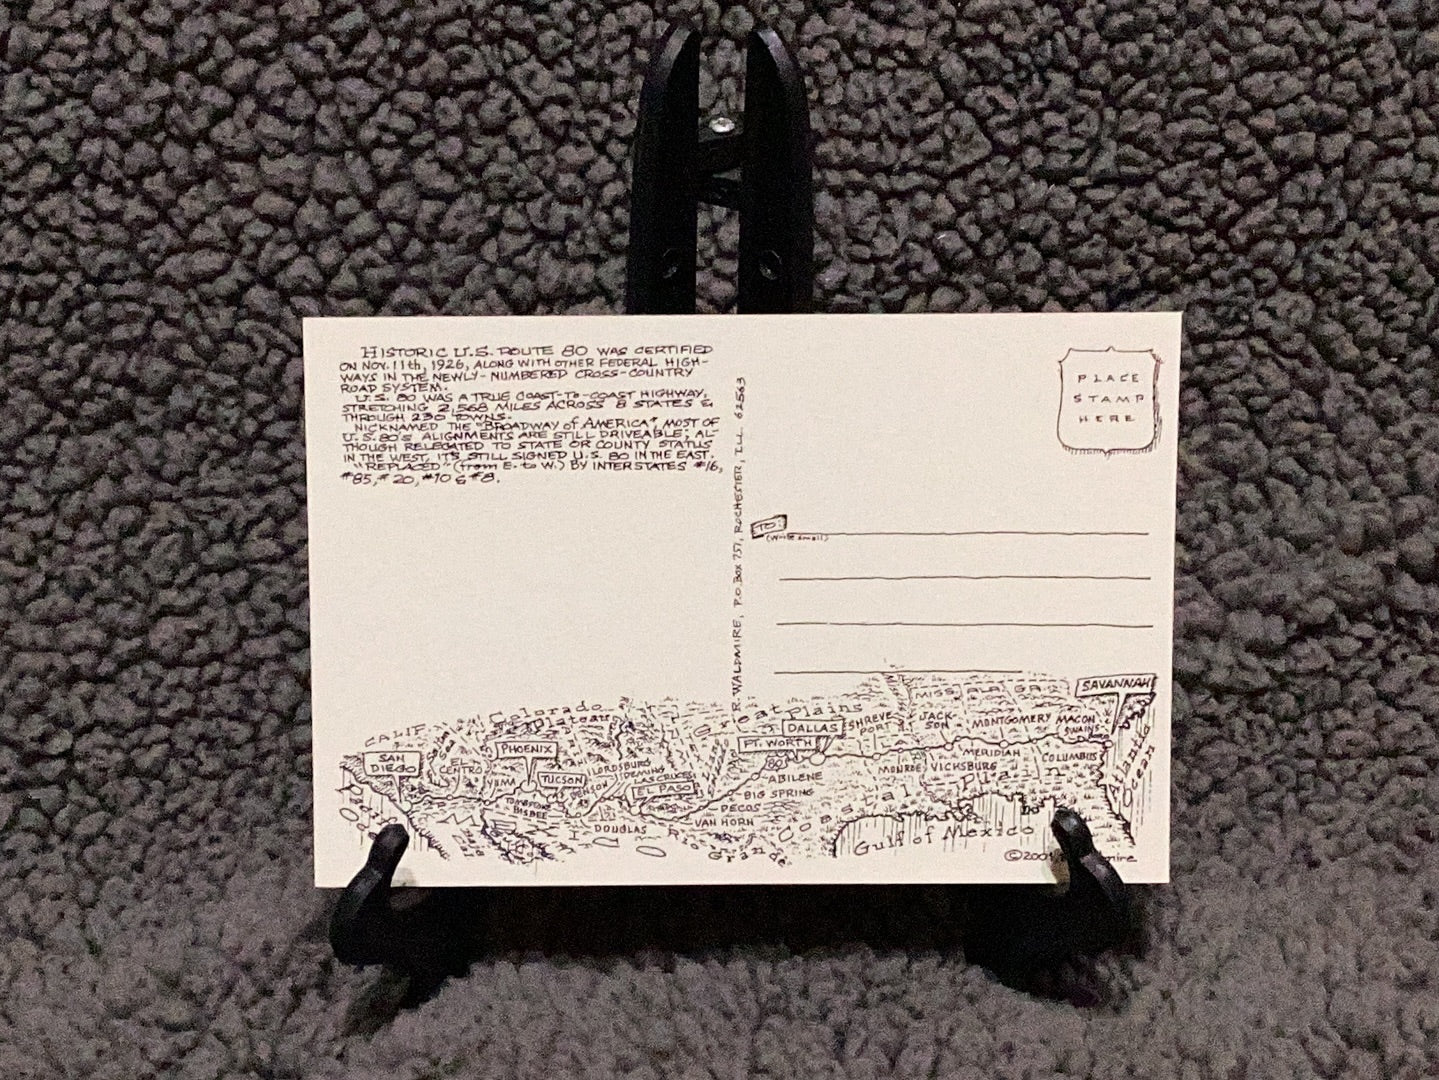 HISTORIC U.S. ROUTE 80 WAS CERTIFIED
ON NOV. 11th, 1926, ALONG WITH OTHER FEDERAL HIGH-
WAYS IN THE NEWLY-NUMBERED CROSS-COUNTRY
ROAD SYSTEM.
U.S. 80 WAS A TRUE COAST-TO-COAST HIGHWAY,
STRETCHING 2,568 MILES ACROSS 8 STATES &
THROUGH 230 TOWNS.
NICKNAMED THE "BROADWAY of AMERICA" MOST OF
U.S. 80'S ALIGNMENTS ARE STILL DRIVEABLE; AL-
THOUGH RELEGATED TO STATE OR COUNTY STATUS
IN THE WEST, IT'S STILL SIGNED U.S. 80 IN THE EAST.
"REPLACED" (from E. to W.) BY INTERSTATES #16,
#85, #20, #10 & #8.
R. WALDMIRE, P.O. BOX 757, ROCHESTER, ILL. 62563
PLACE
STAMP
HERE
TO:
(Write small)
CALIF
SAN
DIEGO
Pacific
EL
CENTRO
YUMA
Colorado
Plateau
PHOENIX
TUCSON
BENSON
TOMBSTONE
BISBEE
DOUGLAS
LORDSBURG
DEMING
LAS CRUCES
EL PASO
VAN HORN
PECOS
BIG SPRING
ABILENE
Rio
Grande
Great Plains
FT. WORTH
DALLAS
80
SHREVE
PORT
MONROE
VICKSBURG
JACK-
SON
MERIDIAN
MISS. ALA. GA.
MONTGOMERY
COLUMBUS
MACON
SWAINS
SAVANNAH
Coastal Plain
Gulf of Mexico
Atlantic
Ocean